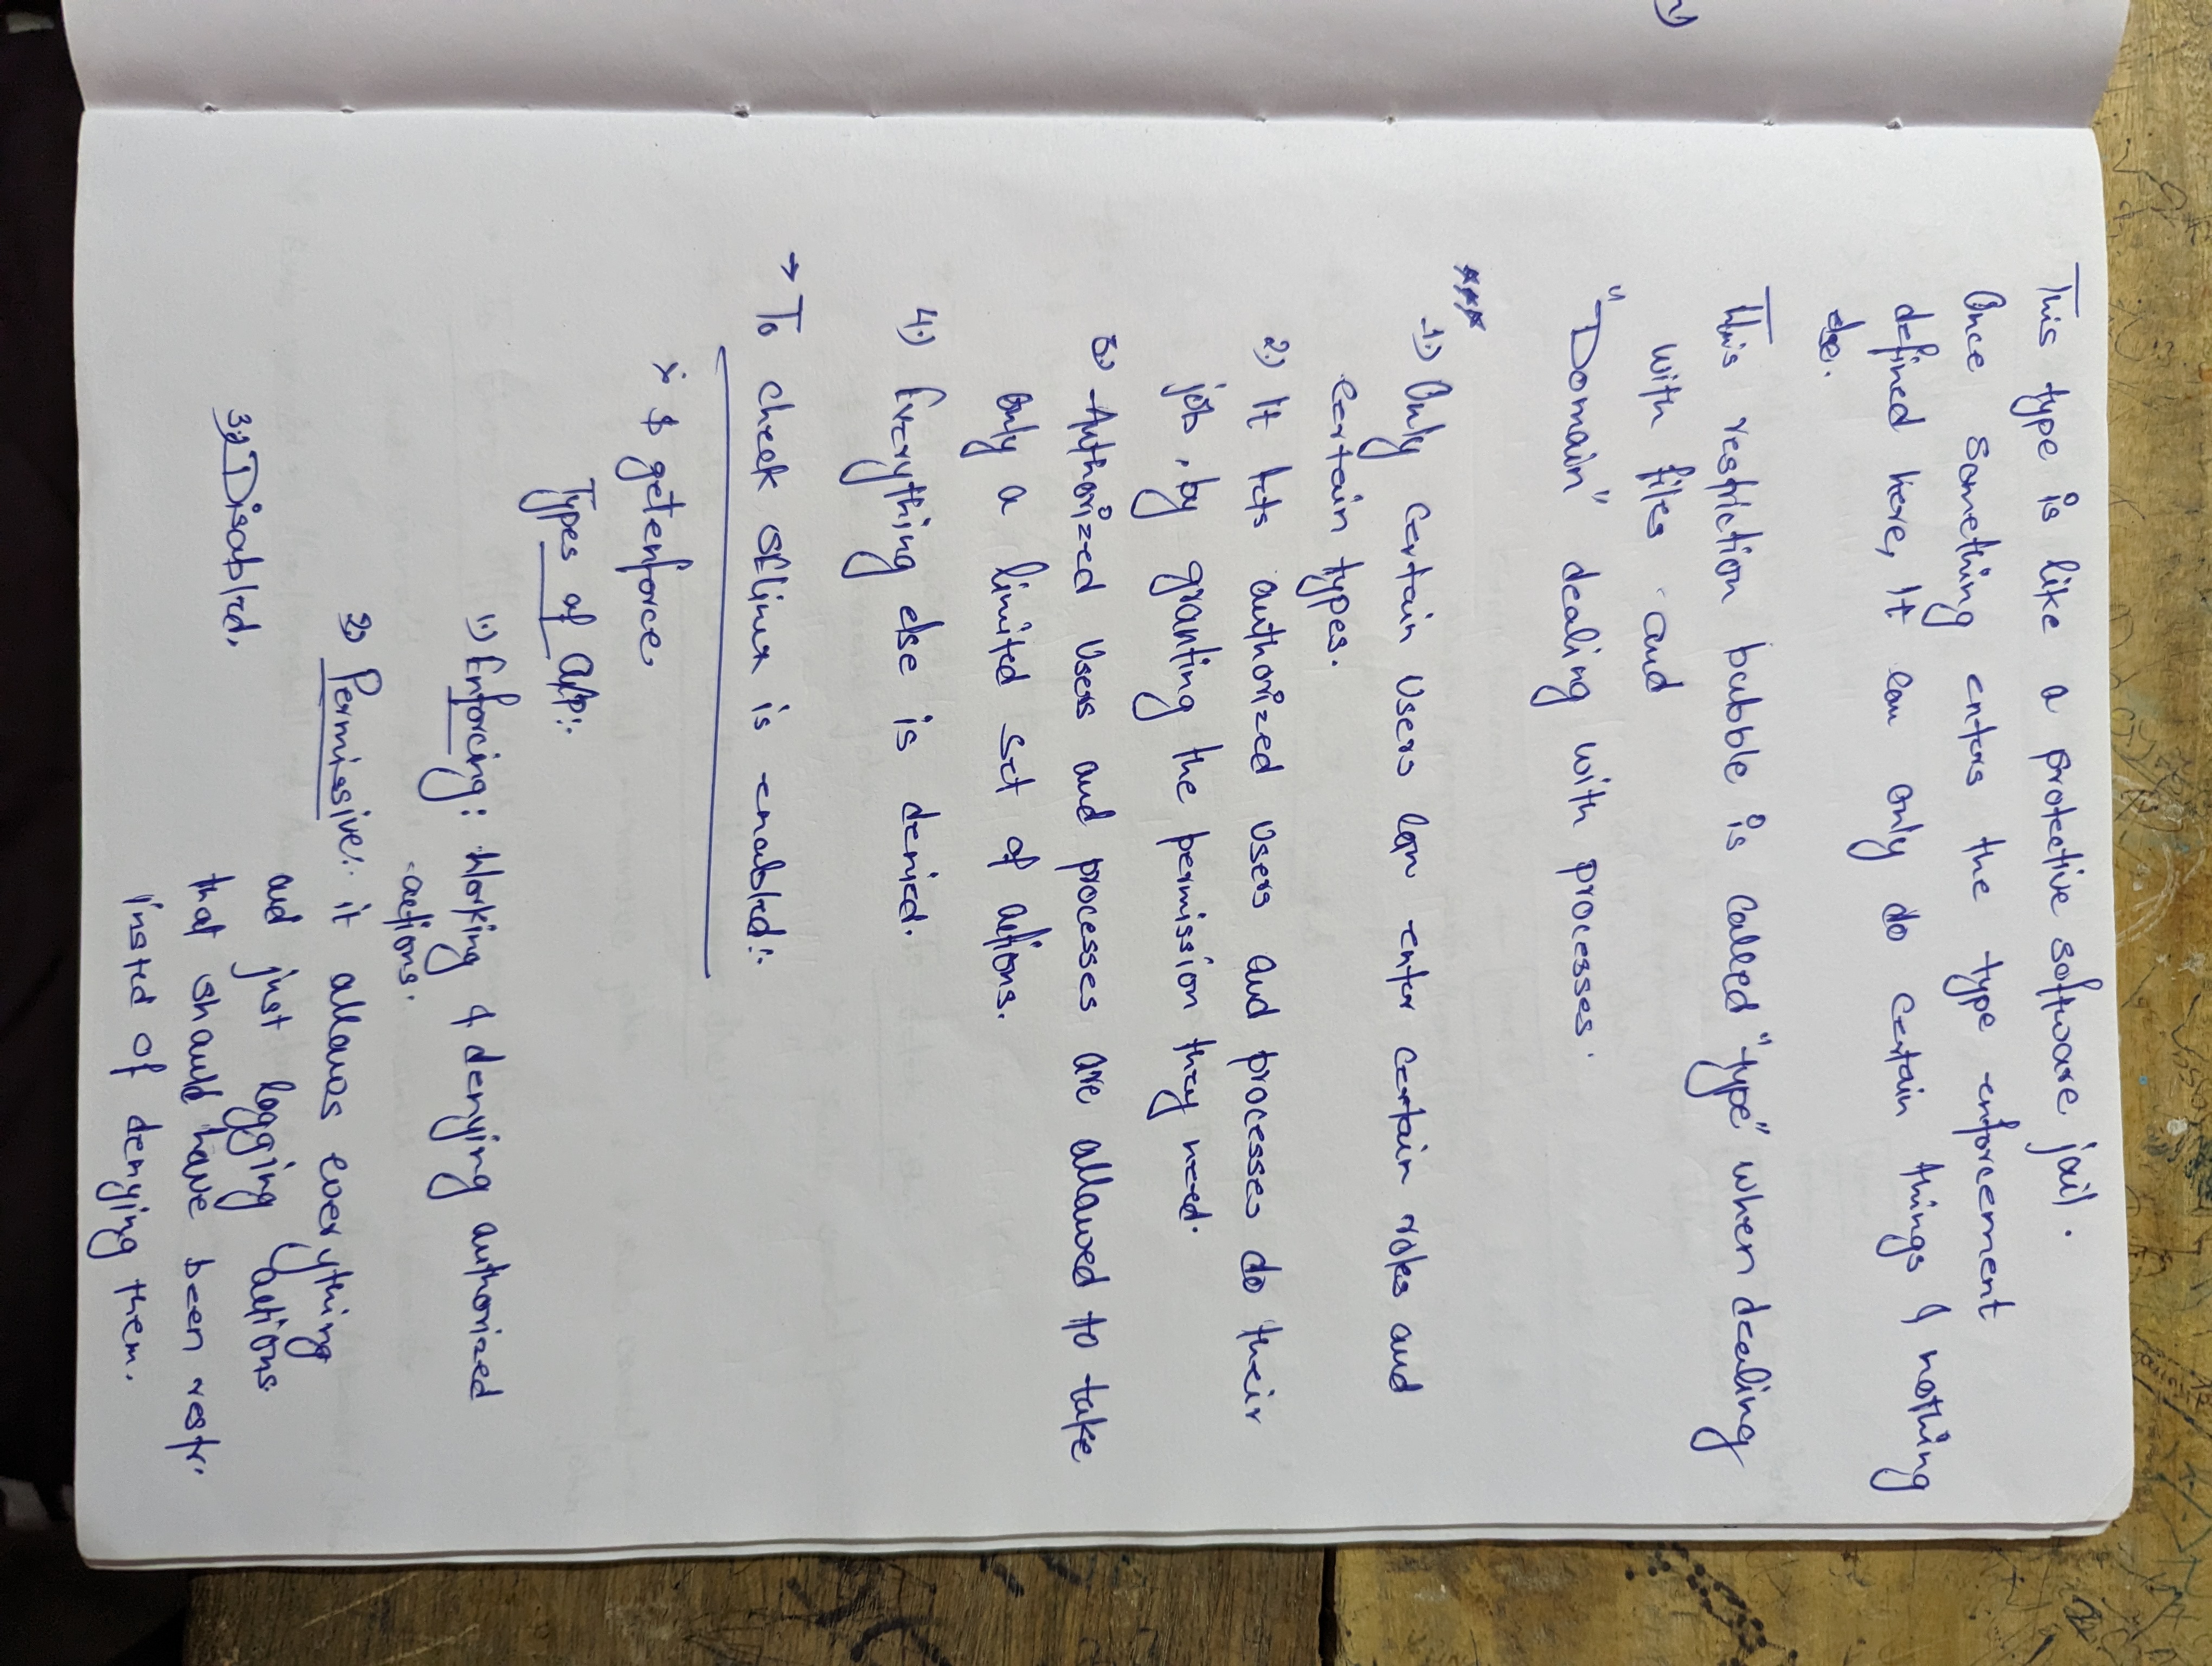 This type is like a protective software jail.
Once something enters the type enforcement
defined here, It can only do certain things & nothing
else.
This restriction bubble is called "type" when dealing
with files and
"Domain" dealing with processes.
***
1.) Only certain users can enter certain roles and
certain types.
2.) It lets authorized users and processes do their
job, by granting the permission they need.
3.) Authorized users and processes are allowed to take
only a limited set of actions.
4.) Everything else is denied.
→ To check SElinux is enabled:-
$ getenforce
Types of O/p:-
1.) Enforcing: Working & denying authorized
actions.
2.) Permissive:- it allows everything
and just logging actions
that should have been restr.
insted of denying them.
3.) Disabled.